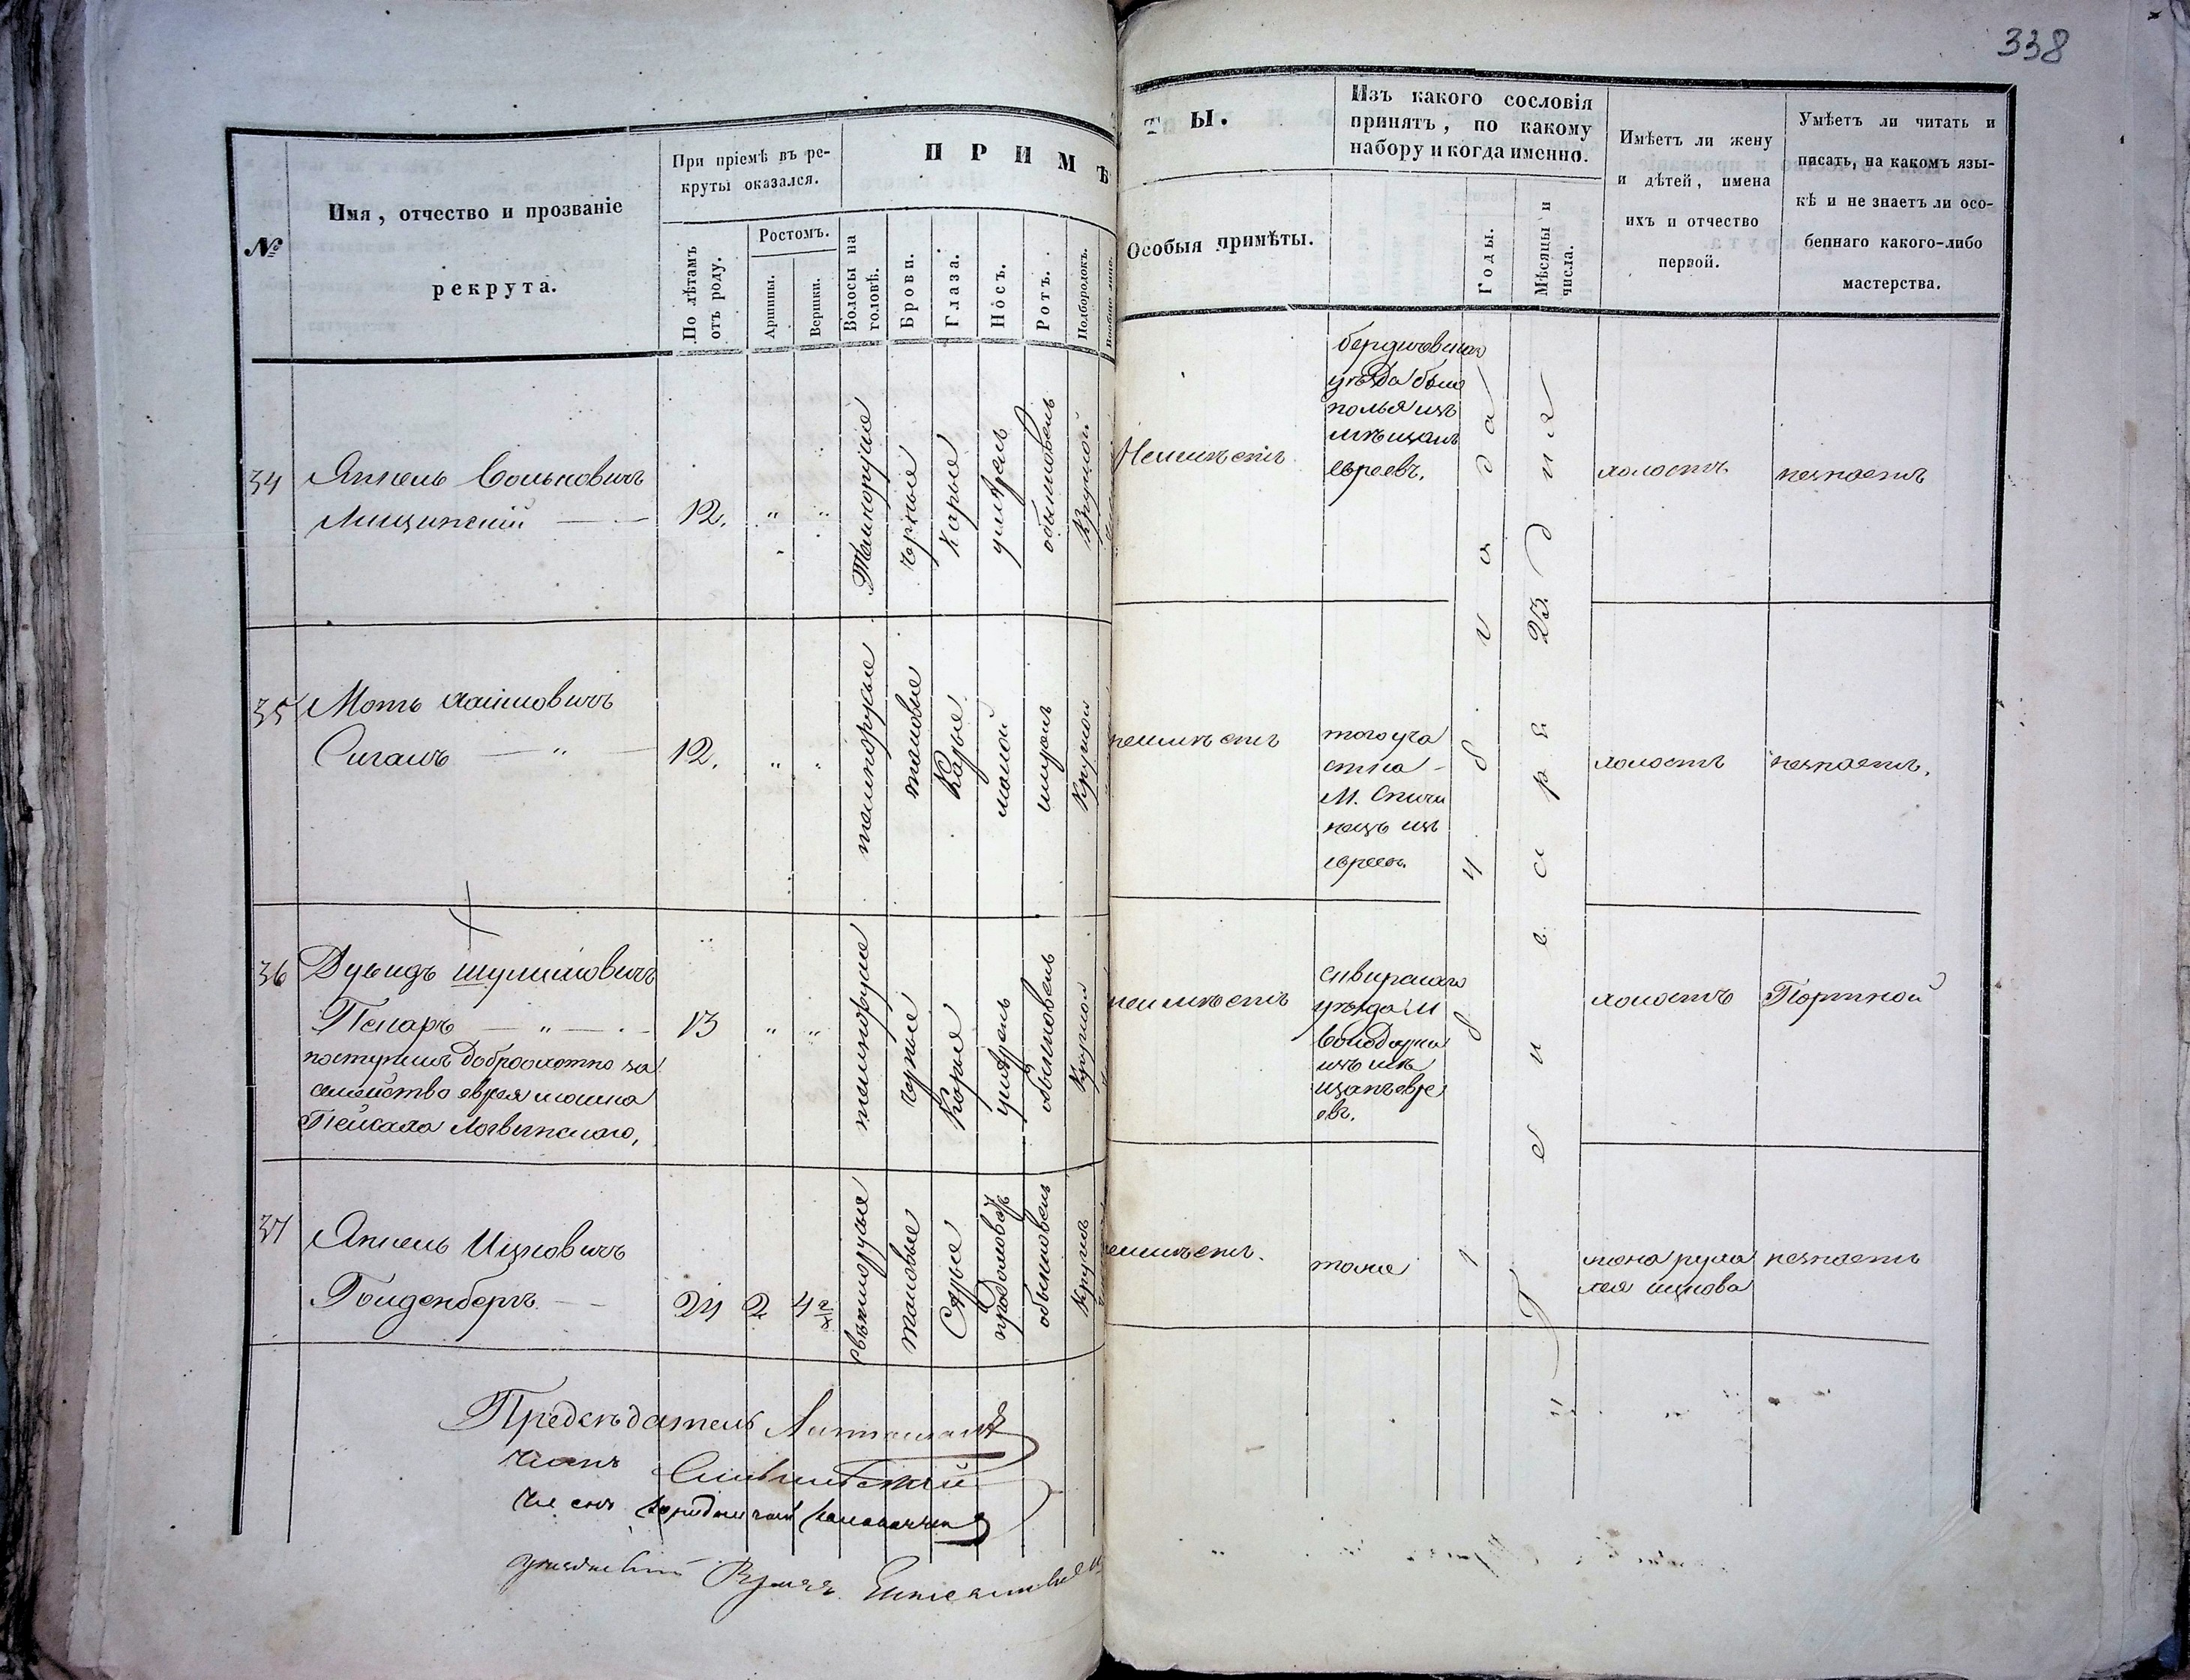 338
№
Имя, отчество и прозваніе
рекрута.
При пріемѣ въ ре-
круты оказался.
По лѣтамъ
отъ роду.
Ростомъ.
Аршины.
Вершки.
ПРИМѢ
Волосы на
головѣ.
Брови.
Глаза.
Носъ.
Ротъ.
Подбородокъ.
ТЫ.
Особыя примѣты.
Изъ какого сословія
принятъ, по какому
набору и когда именно.
Годы.
Мѣсяцы и
числа.
Имѣетъ ли жену
и дѣтей, имена
ихъ и отчество
первой.
Умѣетъ ли читать и
писать, на какомъ язы-
кѣ и не знаетъ ли осо-
беннаго какого-либо
мастерства.
34
Янкель Вольковичъ
Лищинскій
12.
" "
Темнорусые
черные
Карые
умѣрен
обыкновень
Круглой
Неимѣетъ
бердичовскаго
уѣзда Бѣло
полья изъ
мѣщанъ
евреевъ.
холостъ
незнаетъ
35
Мотъ Хаимовичъ
Сиганъ — " —
12.
" "
темнорусые
таковые
Карые
малой
Круглой
неимѣетъ
того уча
стка -
М. Спичи
нецъ изъ
евреев.
холостъ
незнаетъ.
36
Дувидъ Шулимовичъ
Пекаръ — " —
поступилъ доброохотно за
семейство еврея
Логвинского.
13
" "
темнорусые
черные
Карые
умѣрен
обыкновень
Круглой
неимѣетъ
сквирского
уѣзда М
Володарки
изъ мѣ
щанъ евре
евъ.
холостъ
Портной
37
Янкель Ицковичъ
Гольденбергъ
24 2 4 2/8
свѣтлорусые
таковые
Сѣрые
продолговат
обыкновень
Кругла
неимѣетъ.
тоже
жена рухля
лея ицкова
незнаетъ
1 8 4 8 года
Генваря 23 дня
Предсѣдатель
Членъ
Членъ